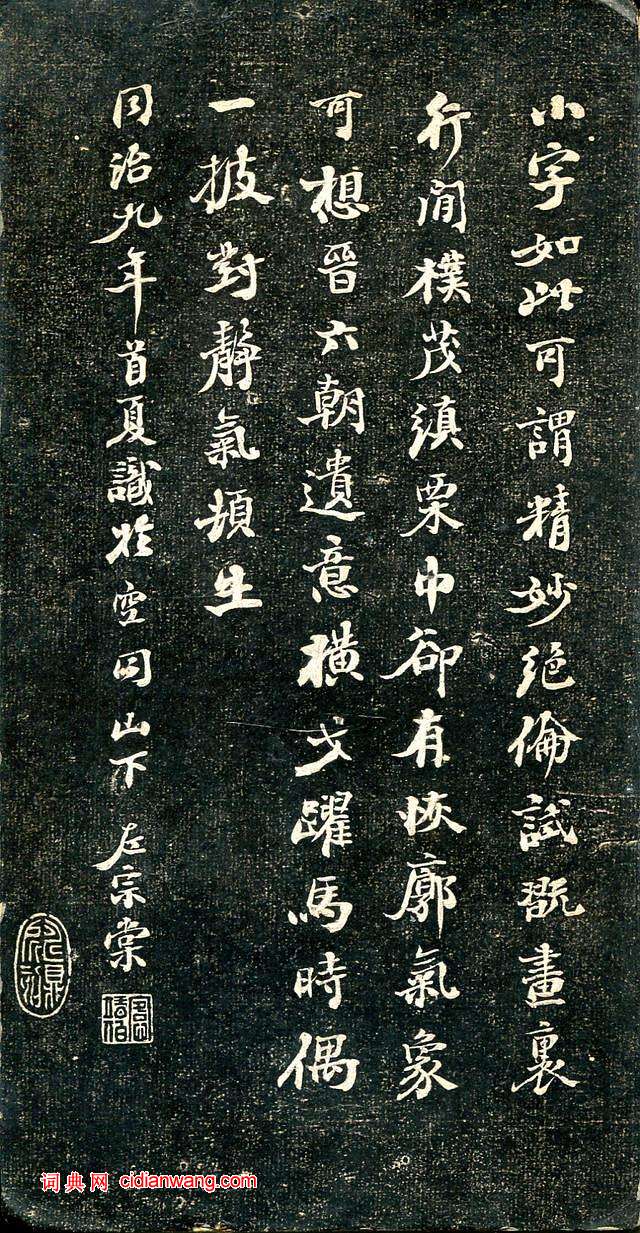 小字如此可謂精妙绝倫試翫畫裏
行間樸茂縝栗中卻有恢廓氣象
可想晉六朝遺意橫戈躍馬時偶
一披對靜氣頓生
同治九年首夏識於空同山下左宗棠
词典网 cidianwang.com